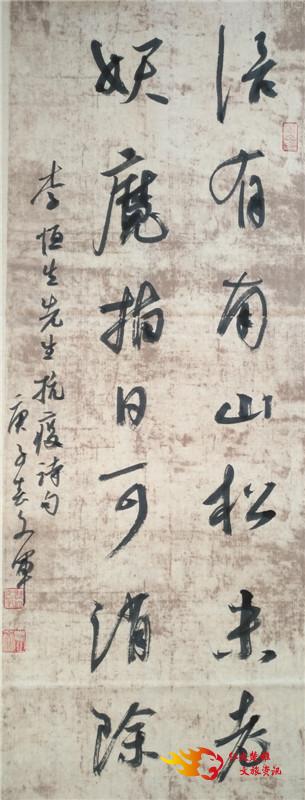 信有南山松未老
妖魔指日可消除
李恒生先生抗疫诗句
庚子春文军
楚雄
文旅资讯